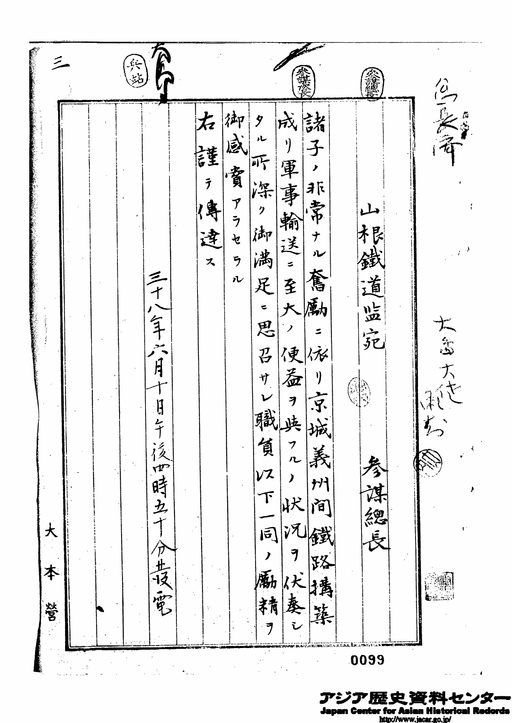 山根鐵道監宛
參謀總長
諸子ノ非常ナル奮勵ニ依リ京城義州間鐵路搆築
成リ軍事輸送ニ至大ノ便益ヲ與フルノ狀況ヲ伏奏シ
タル所深ク御滿足ニ思召サレ職員以下一同ノ勵精ヲ
御感賞アラセラル
右謹テ傳達ス
三十八年六月十日午後四時五十分發電
大本營
三
兵站
0099
アジア歴史資料センター
Japan Center for Asian Historical Records
http://www.jacar.go.jp/